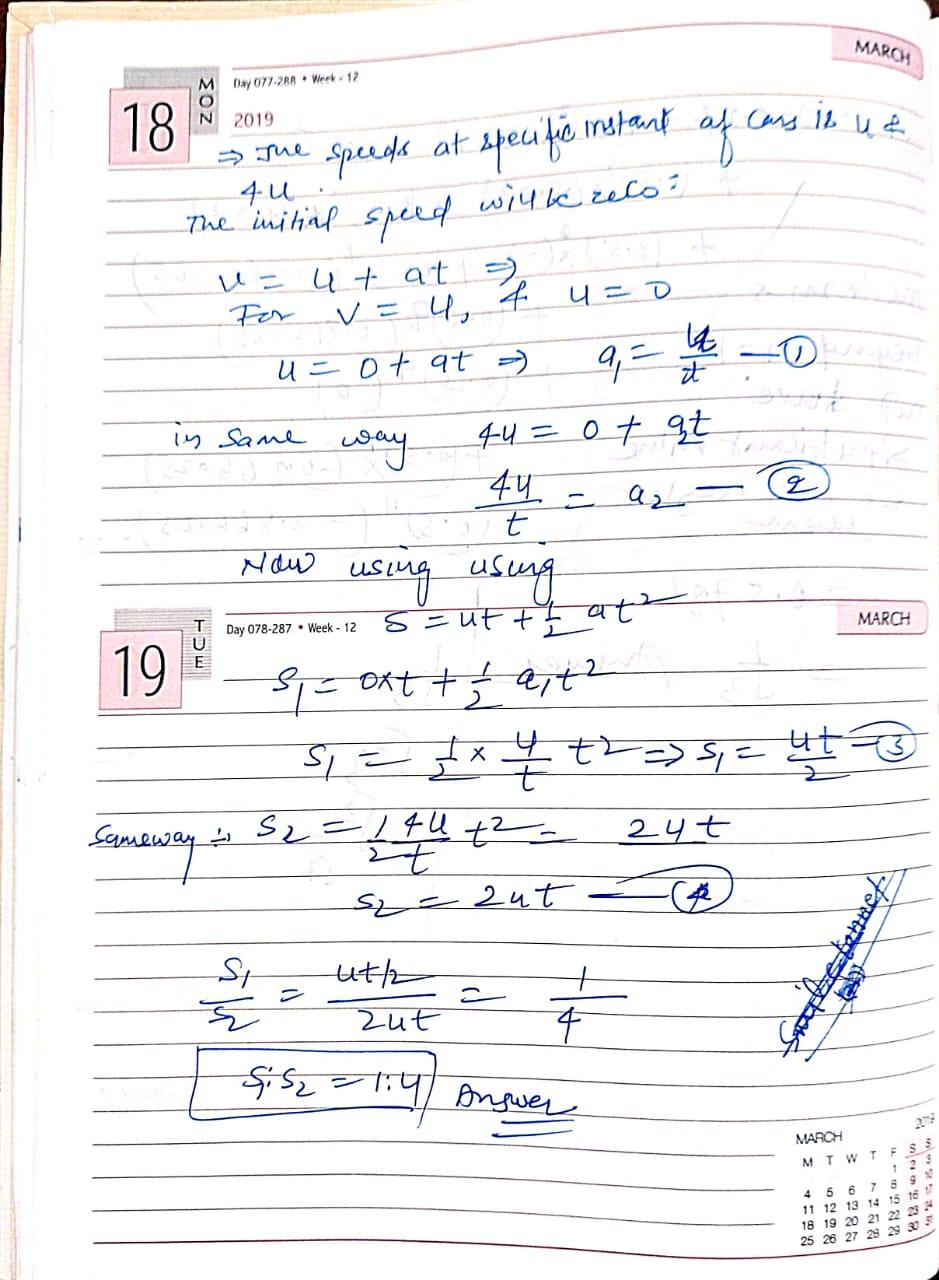 MARCH
MON
Day 077-288 • Week - 12
18
2019
⇒ The speeds at specific instant of cars is u &
4u.
The initial speed will be zero:
v = u + at ⇒
For v = u, & u = 0
u = 0 + at ⇒ a₁ = u/t — ①
in same way 4u = 0 + a₂t
4u/t = a₂ — ②
Now using using
TUE
Day 078-287 • Week - 12
S = ut + 1/2 at²
MARCH
19
S₁ = 0×t + 1/2 a₁t²
S₁ = 1/2 × u/t t² ⇒ S₁ = ut/2 — ③
Sameway :- S₂ = 1/2 4u/t t² = 2ut
S₂ = 2ut — ④
S₁/S₂ = ut/2 / 2ut = 1/4
S₁:S₂ = 1:4 Answer
MARCH 2019
M T W T F S S
1 2 3
4 5 6 7 8 9 10
11 12 13 14 15 16 17
18 19 20 21 22 23 24
25 26 27 28 29 30 31